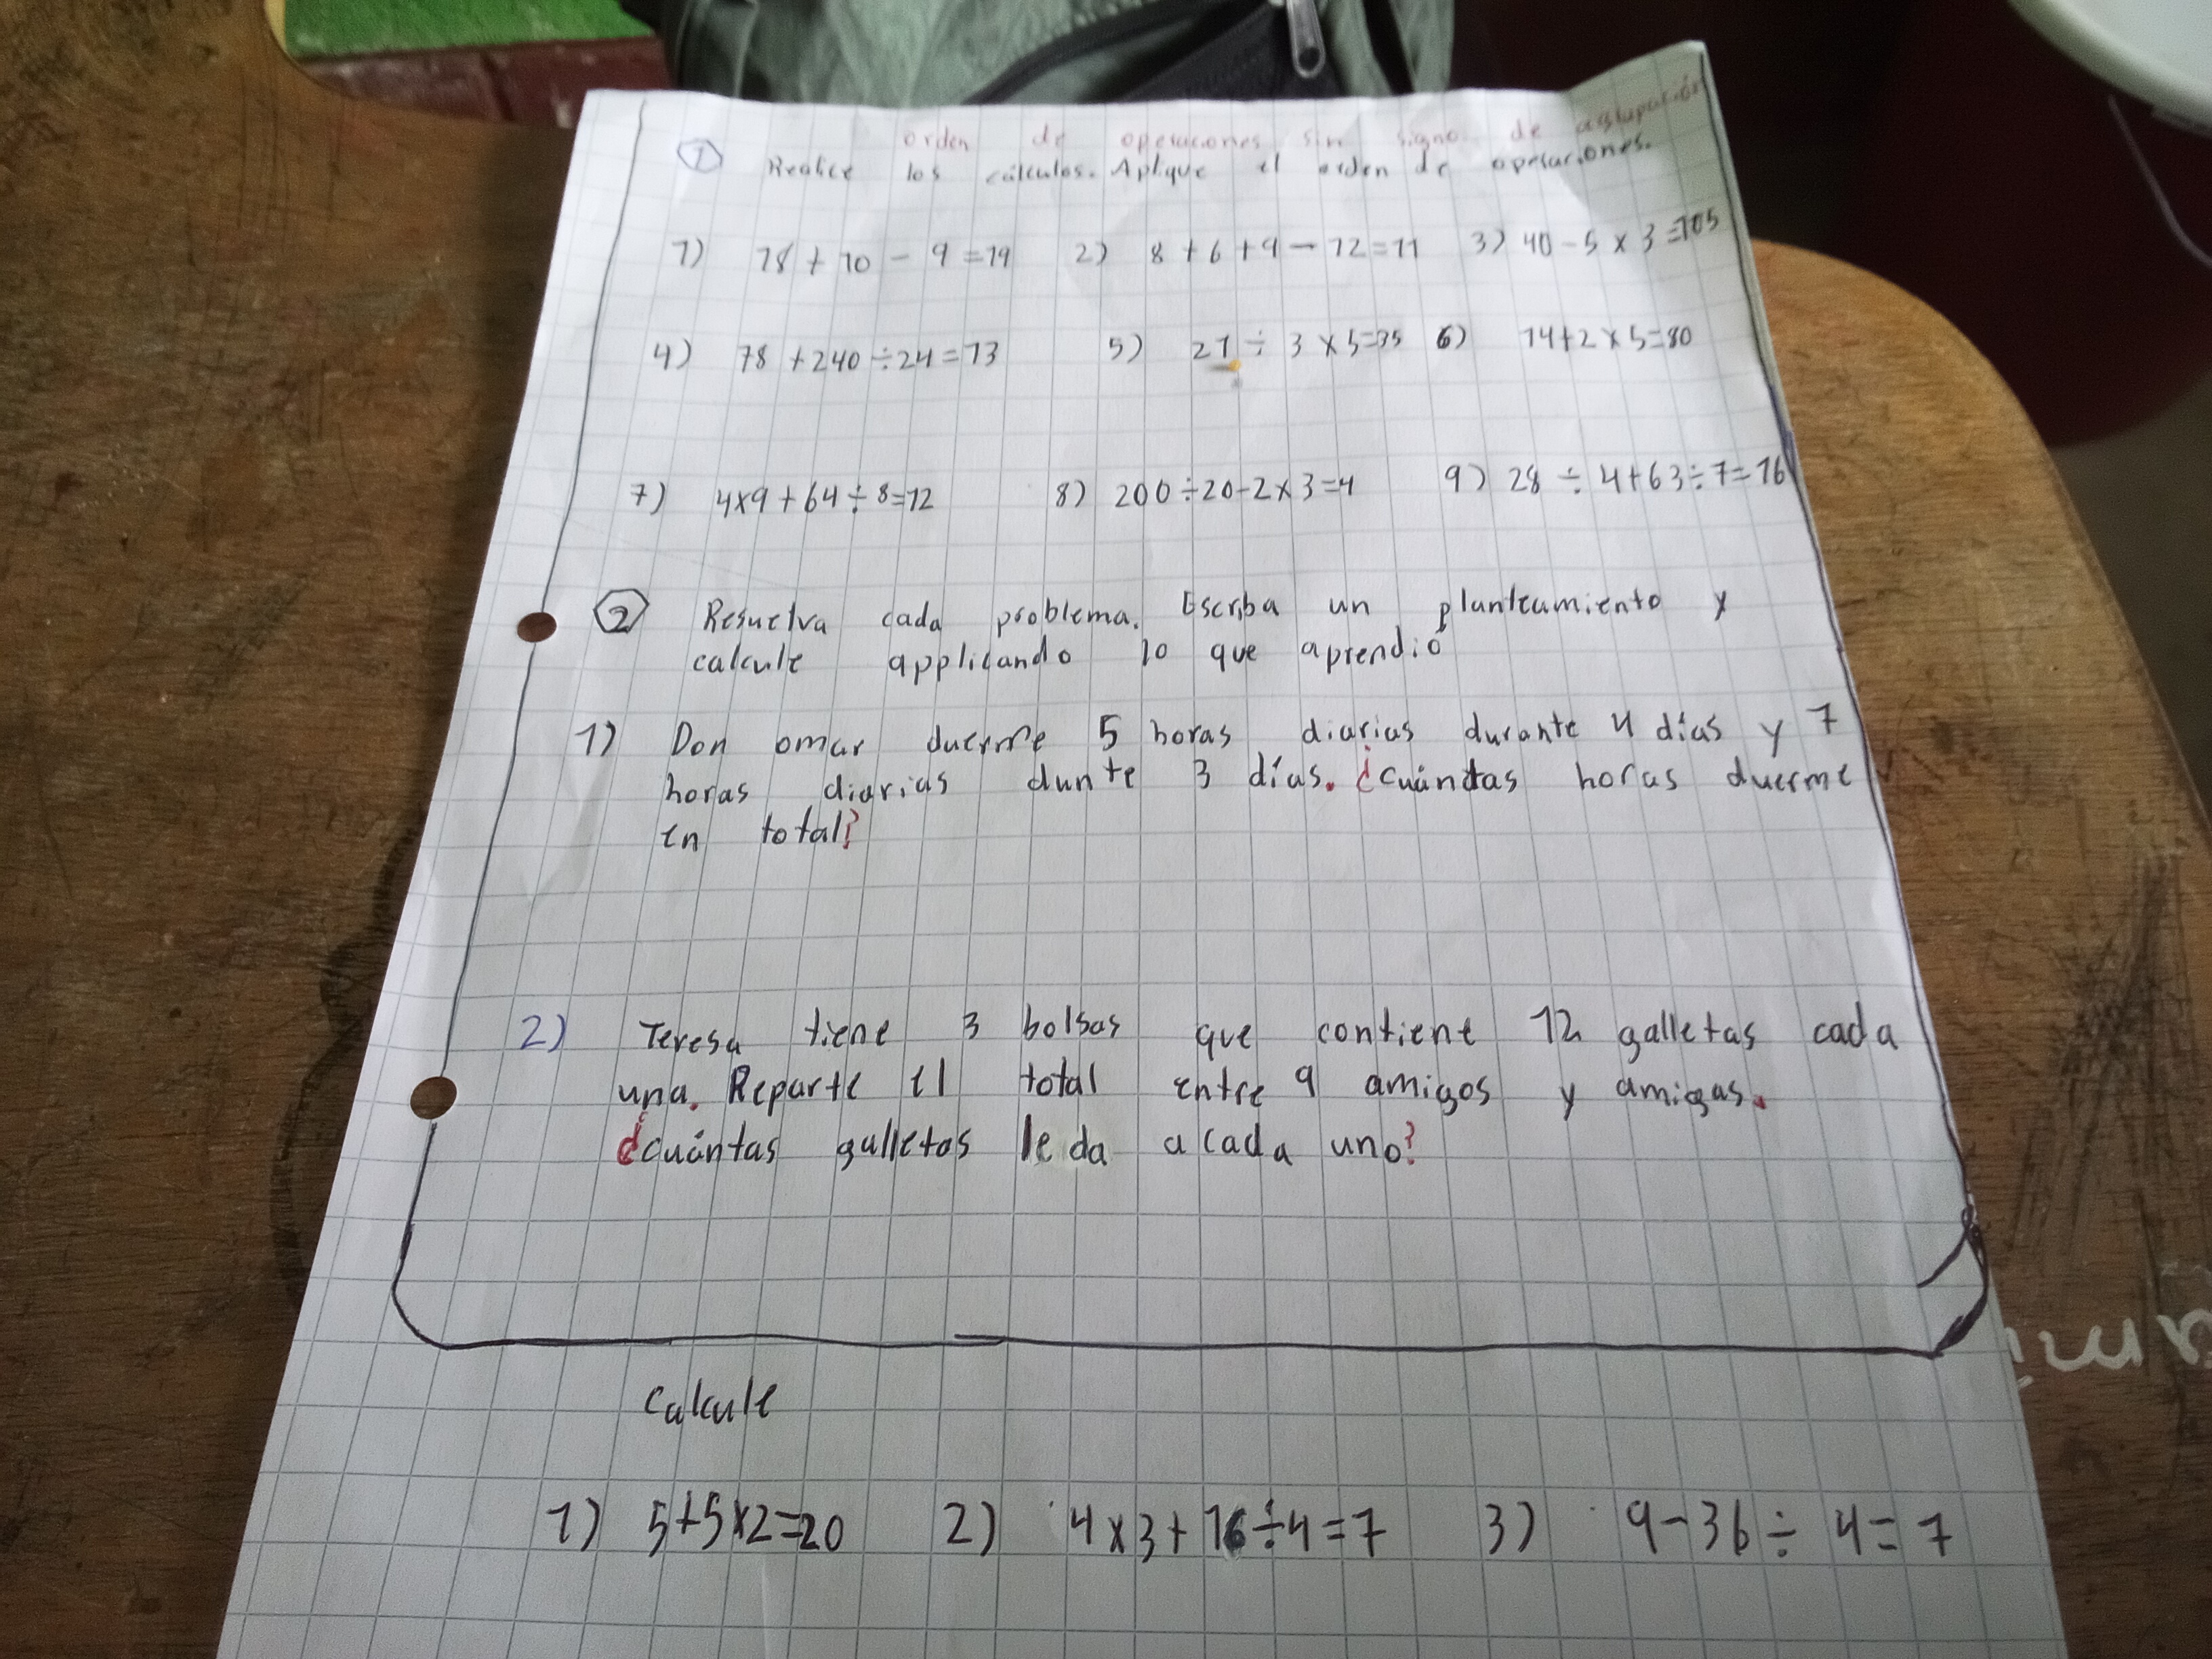 orden de operaciones sin signo de agrupación
1 Realice los cálculos. Aplique el orden de operaciones.
1) 18 + 10 - 9 = 19 2) 8 + 6 + 9 - 12 = 11 3) 40 - 5 x 3 = 105
4) 78 + 240 ÷ 24 = 13 5) 21 ÷ 3 x 5 = 35 6) 14 + 2 x 5 = 80
7) 4x9 + 64 ÷ 8 = 12 8) 200 ÷ 20 - 2 x 3 = 4 9) 28 ÷ 4 + 63 ÷ 7 = 16
2 Resuelva cada problema. Escriba un planteamiento y
calcule applicando lo que aprendió
1) Don omar duerme 5 horas diarias durante 4 días y 7
horas diarias dunte 3 días. ¿cuántas horas duerme
en total?
2) Teresa tiene 3 bolsas que contiene 12 galletas cada
una. Reparte el total entre 9 amigos y amigas.
¿cuántas galletas le da a cada uno?
calcule
1) 5+5x2=20 2) 4x3+16÷4=7 3) 9-36÷ 4= 7